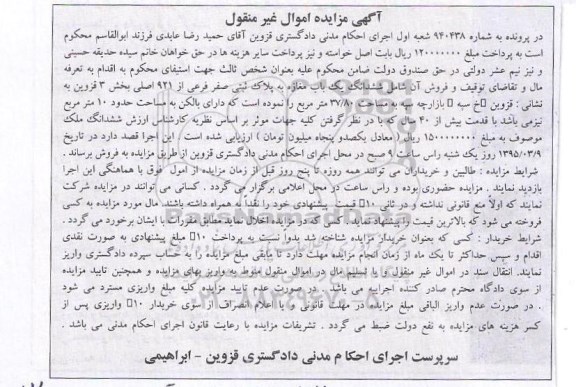 آگهی مزایده اموال غیر منقول
در پرونده به شماره ۹۴۰۴۳۸ شعبه اول اجرای احکام مدنی دادگستری قزوین آقای حمید رضا عابدی فرزند ابوالقاسم محکوم
است به پرداخت مبلغ ۱۲۰۰۰۰۰۰۰ ریال بابت اصل خواسته و نیز پرداخت سایر هزینه ها در حق خواهان خانم سیده حدیقه حسینی
و نیز نیم عشر دولتی در حق صندوق دولت ضامن محکوم علیه بعنوان شخص ثالث جهت استیفای محکوم به اقدام به تعرفه
مال و تقاضای توقیف و فروش آن شامل ششدانگ یک باب مغازه به پلاک ثبتی صفر فرعی از ۹۲۱ اصلی بخش ۳ قزوین به
نشانی : قزوین خ سپه بازارچه سپه به مساحت ۳۷/۸۰ متر مربع را نموده است که دارای بالکن به مساحت حدود ۱۰ متر مربع
نیزمی باشد با قدمت بیش از ۴۰ سال که با در نظر گرفتن کلیه جهات موثر بر اساس نظریه کارشناس ارزش ششدانگ ملک
موصوف به مبلغ ۱۵۰۰۰۰۰۰۰۰ ریال ( معادل یکصدو پنجاه میلیون تومان ) ارزیابی شده است . این اجرا قصد دارد در تاریخ
۱۳۹۵/۰۳/۹ روز یک شنبه راس ساعت ۹ صبح در محل اجرای احکام مدنی دادگستری قزوین از طریق مزایده به فروش برساند .
شرایط مزایده : طالبین و خریداران می توانند همه روزه تا پنج روز قبل از زمان مزایده از اموال فوق با هماهنگی این اجرا
بازدید نمایند . مزایده حضوری بوده و راس ساعت در محل اعلامی برگزار می گردد . کسانی می توانند در مزایده شرکت
نمایند که اولاً منع قانونی نداشته و در ثانی ۱۰ قیمت پیشنهادی خود را نقداً به همراه داشته باشند. مال مورد مزایده به کسی
فروخته می شود که بالاترین قیمت را پیشنهاد نماید. کسی که در مزایده اخلال نماید مطابق مقررات با ایشان برخورد می گردد .
شرایط خریدار : کسی که بعنوان خریدار مزایده شناخته شد بدواً نسبت به پرداخت ۱۰ مبلغ پیشنهادی به صورت نقدی
اقدام و سپس حداکثر تا یک ماه از زمان انجام مزایده مهلت دارد تا مابقی مبلغ مزایده را به حساب سپرده دادگستری واریز
نمایند. انتقال سند در اموال غیر منقول و یا تسلیم مال در اموال منقول منوط به واریز بهای مزایده و همچنین تایید مزایده
از سوی دادگاه محترم صادر کننده اجراییه می باشد . در صورت عدم تایید مزایده کلیه مبلغ واریزی مسترد می شود
. در صورت عدم واریز الباقی مبلغ مزایده در مهلت قانونی و یا اعلام انصراف از سوی خریدار ۱۰ واریزی پس از
کسر هزینه های مزایده به نفع دولت ضبط می گردد . تشریفات مزایده با رعایت قانون اجرای احکام مدنی می باشد .
سرپرست اجرای احکام مدنی دادگستری قزوین - ابراهیمی